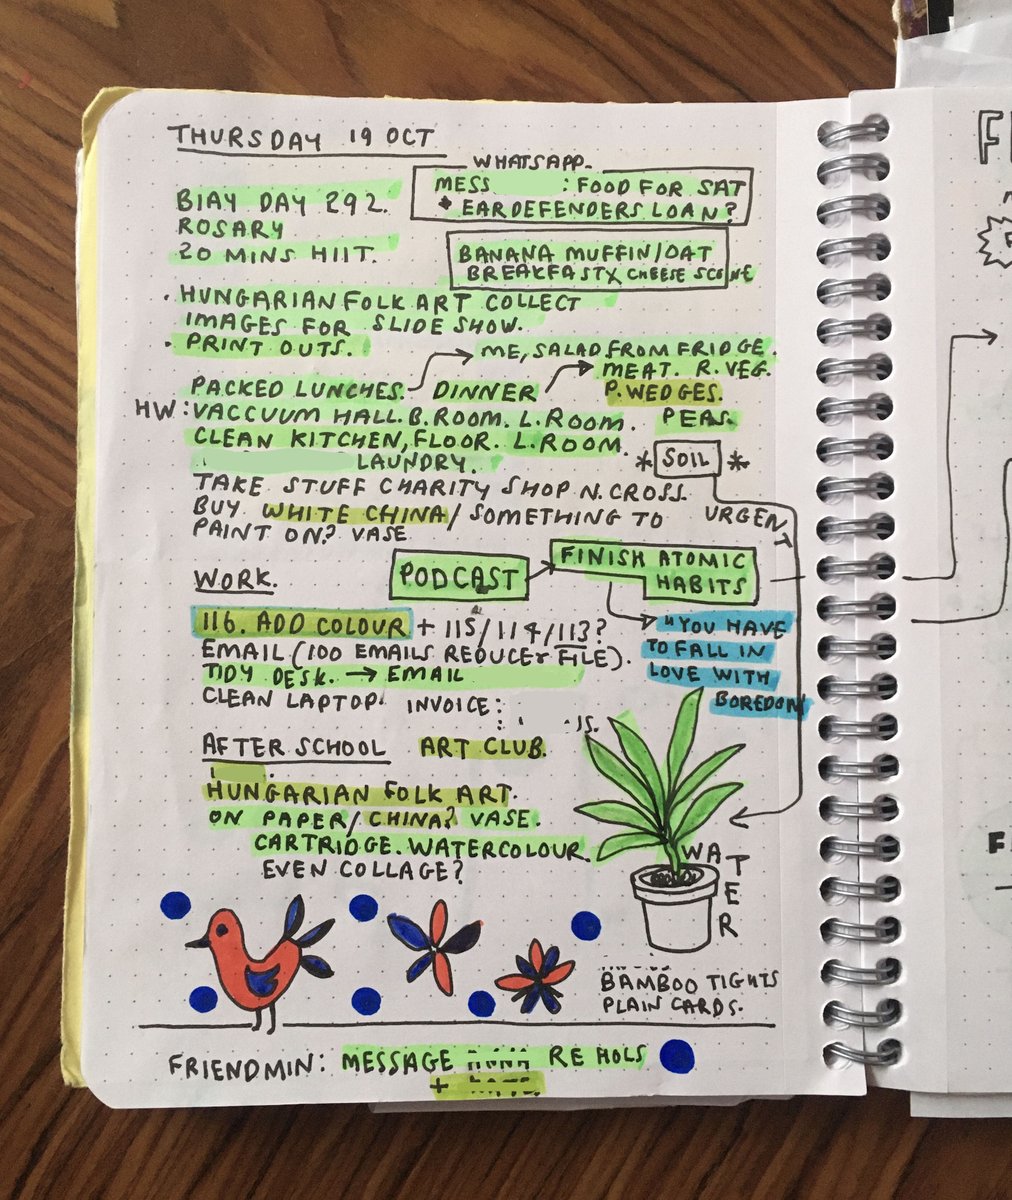 THURSDAY 19 OCT
WHATSAPP.
MESS : FOOD FOR SAT
* EAR DEFENDERS LOAN?
BIAY DAY 292.
ROSARY
20 MINS HIIT.
BANANA MUFFIN/OAT
BREAKFAST X CHEESE SCONE
• HUNGARIAN FOLK ART COLLECT
IMAGES FOR SLIDE SHOW.
• PRINT OUTS.
ME, SALAD FROM FRIDGE.
PACKED LUNCHES. DINNER
MEAT. R. VEG.
P. WEDGES.
PEAS.
HW: VACCUUM HALL. B.ROOM. L.ROOM.
CLEAN KITCHEN, FLOOR. L.ROOM.
LAUNDRY.
* SOIL *
TAKE STUFF CHARITY SHOP N. CROSS.
BUY WHITE CHINA / SOMETHING TO
PAINT ON? VASE
URGENT
WORK.
PODCAST
FINISH ATOMIC
HABITS
116. ADD COLOUR + 115/114/113?
EMAIL (100 EMAILS REDUCE + FILE).
TIDY DESK. → EMAIL
CLEAN LAPTOP. INVOICE:
"YOU HAVE
TO FALL IN
LOVE WITH
BOREDOM
AFTER SCHOOL ART CLUB.
HUNGARIAN FOLK ART.
ON PAPER/CHINA? VASE.
CARTRIDGE. WATERCOLOUR.
EVEN COLLAGE?
WATER
BAMBOO TIGHTS
PLAIN CARDS.
FRIENDMIN: MESSAGE RE HOLS
+